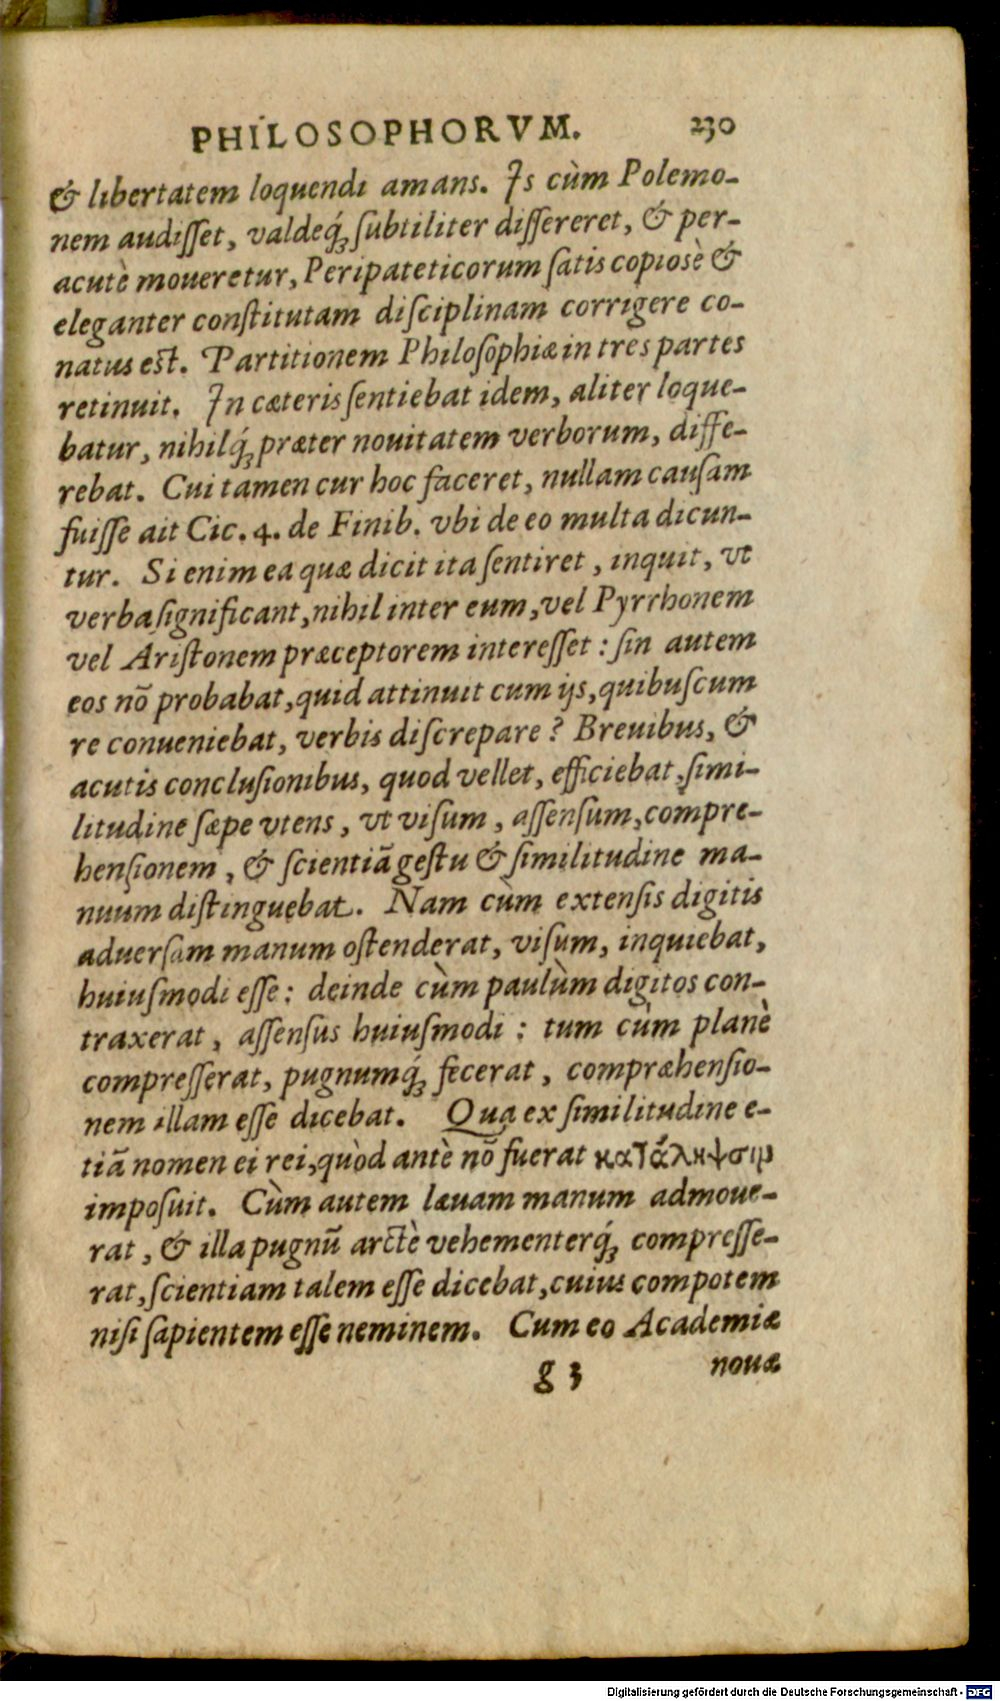 PHILOSOPHORVM. 230
& libertatem loquendi amans. Is cùm Polemo-
nem audisſet, valdeq́ꝫ ſubtiliter disſereret, & per-
acutè moueretur, Peripateticorum ſatis copiosè &
eleganter conſtitutam diſciplinam corrigere co-
natus est. Partitionem Philoſophiæ in tres partes
retinuit. In cæteris ſentiebat idem, aliter loque-
batur, nihilq́ꝫ præter nouitatem verborum, diffe-
rebat. Cui tamen cur hoc faceret, nullam cauſam
fuiſſe ait Cic. 4. de Finib. vbi de eo multa dicun-
tur. Si enim ea quæ dicit ita ſentiret, inquit, vt
verba ſignificant, nihil inter eum, vel Pyrrhonem
vel Ariſtonem præceptorem intereſſet: ſin autem
eos nõ probabat, quid attinuit cum ijs, quibuſcum
re conueniebat, verbis diſcrepare? Breuibus, &
acutis concluſionibus, quod vellet, efficiebat, ſimi-
litudine ſæpe vtens, vt viſum, aſſenſum, compre-
henſionem, & ſcientiã geſtu & ſimilitudine ma-
nuum diſtinguebat. Nam cùm extenſis digitis
aduerſam manum oſtenderat, viſum, inquiebat,
huiuſmodi eſſe: deinde cùm paulùm digitos con-
traxerat, aſſenſus huiuſmodi: tum cùm planè
compreſſerat, pugnumq́ꝫ fecerat, compræhenſio-
nem illam eſſe dicebat. Qua ex ſimilitudine e-
tiã nomen ei rei, quòd antè nõ fuerat κατάληψιν
impoſuit. Cùm autem læuam manum admoue-
rat, & illa pugnũ arctè vehementerq́ꝫ compreſſe-
rat, ſcientiam talem eſſe dicebat, cuius compotem
niſi ſapientem eſſe neminem. Cum eo Academiæ
g 3 nouæ
Digitalisierung gefördert durch die Deutsche Forschungsgemeinschaft - DFG